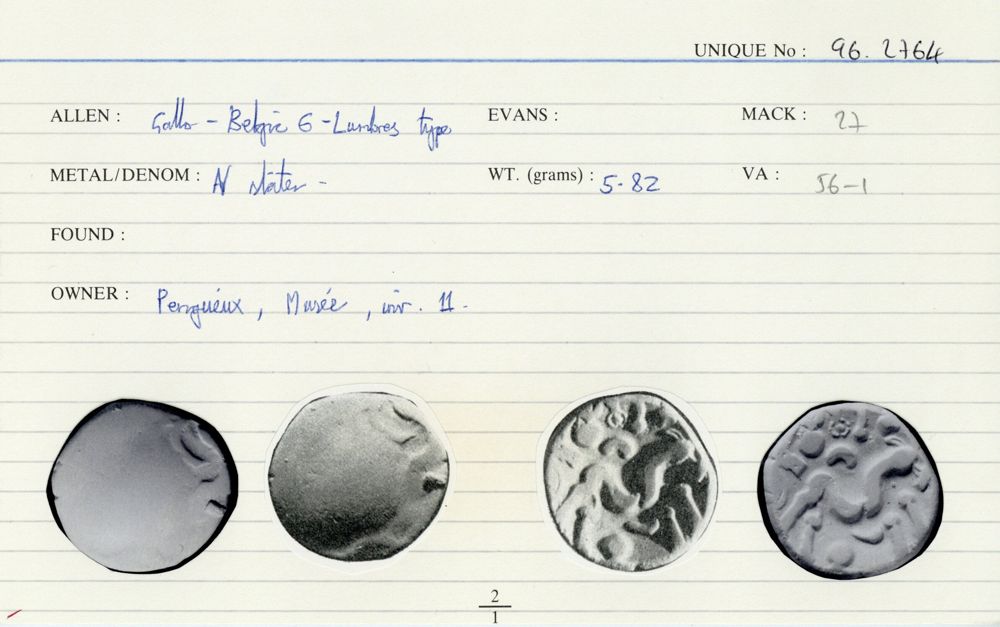 UNIQUE No : 96. 2764
ALLEN : Gallo-Belgic G-Lumbres type EVANS : MACK : 27
METAL/DENOM : AV stater - WT. (grams) : 5.82 VA : 56-1
FOUND :
OWNER : Perigueux, Musée, inv. 11.
2
1